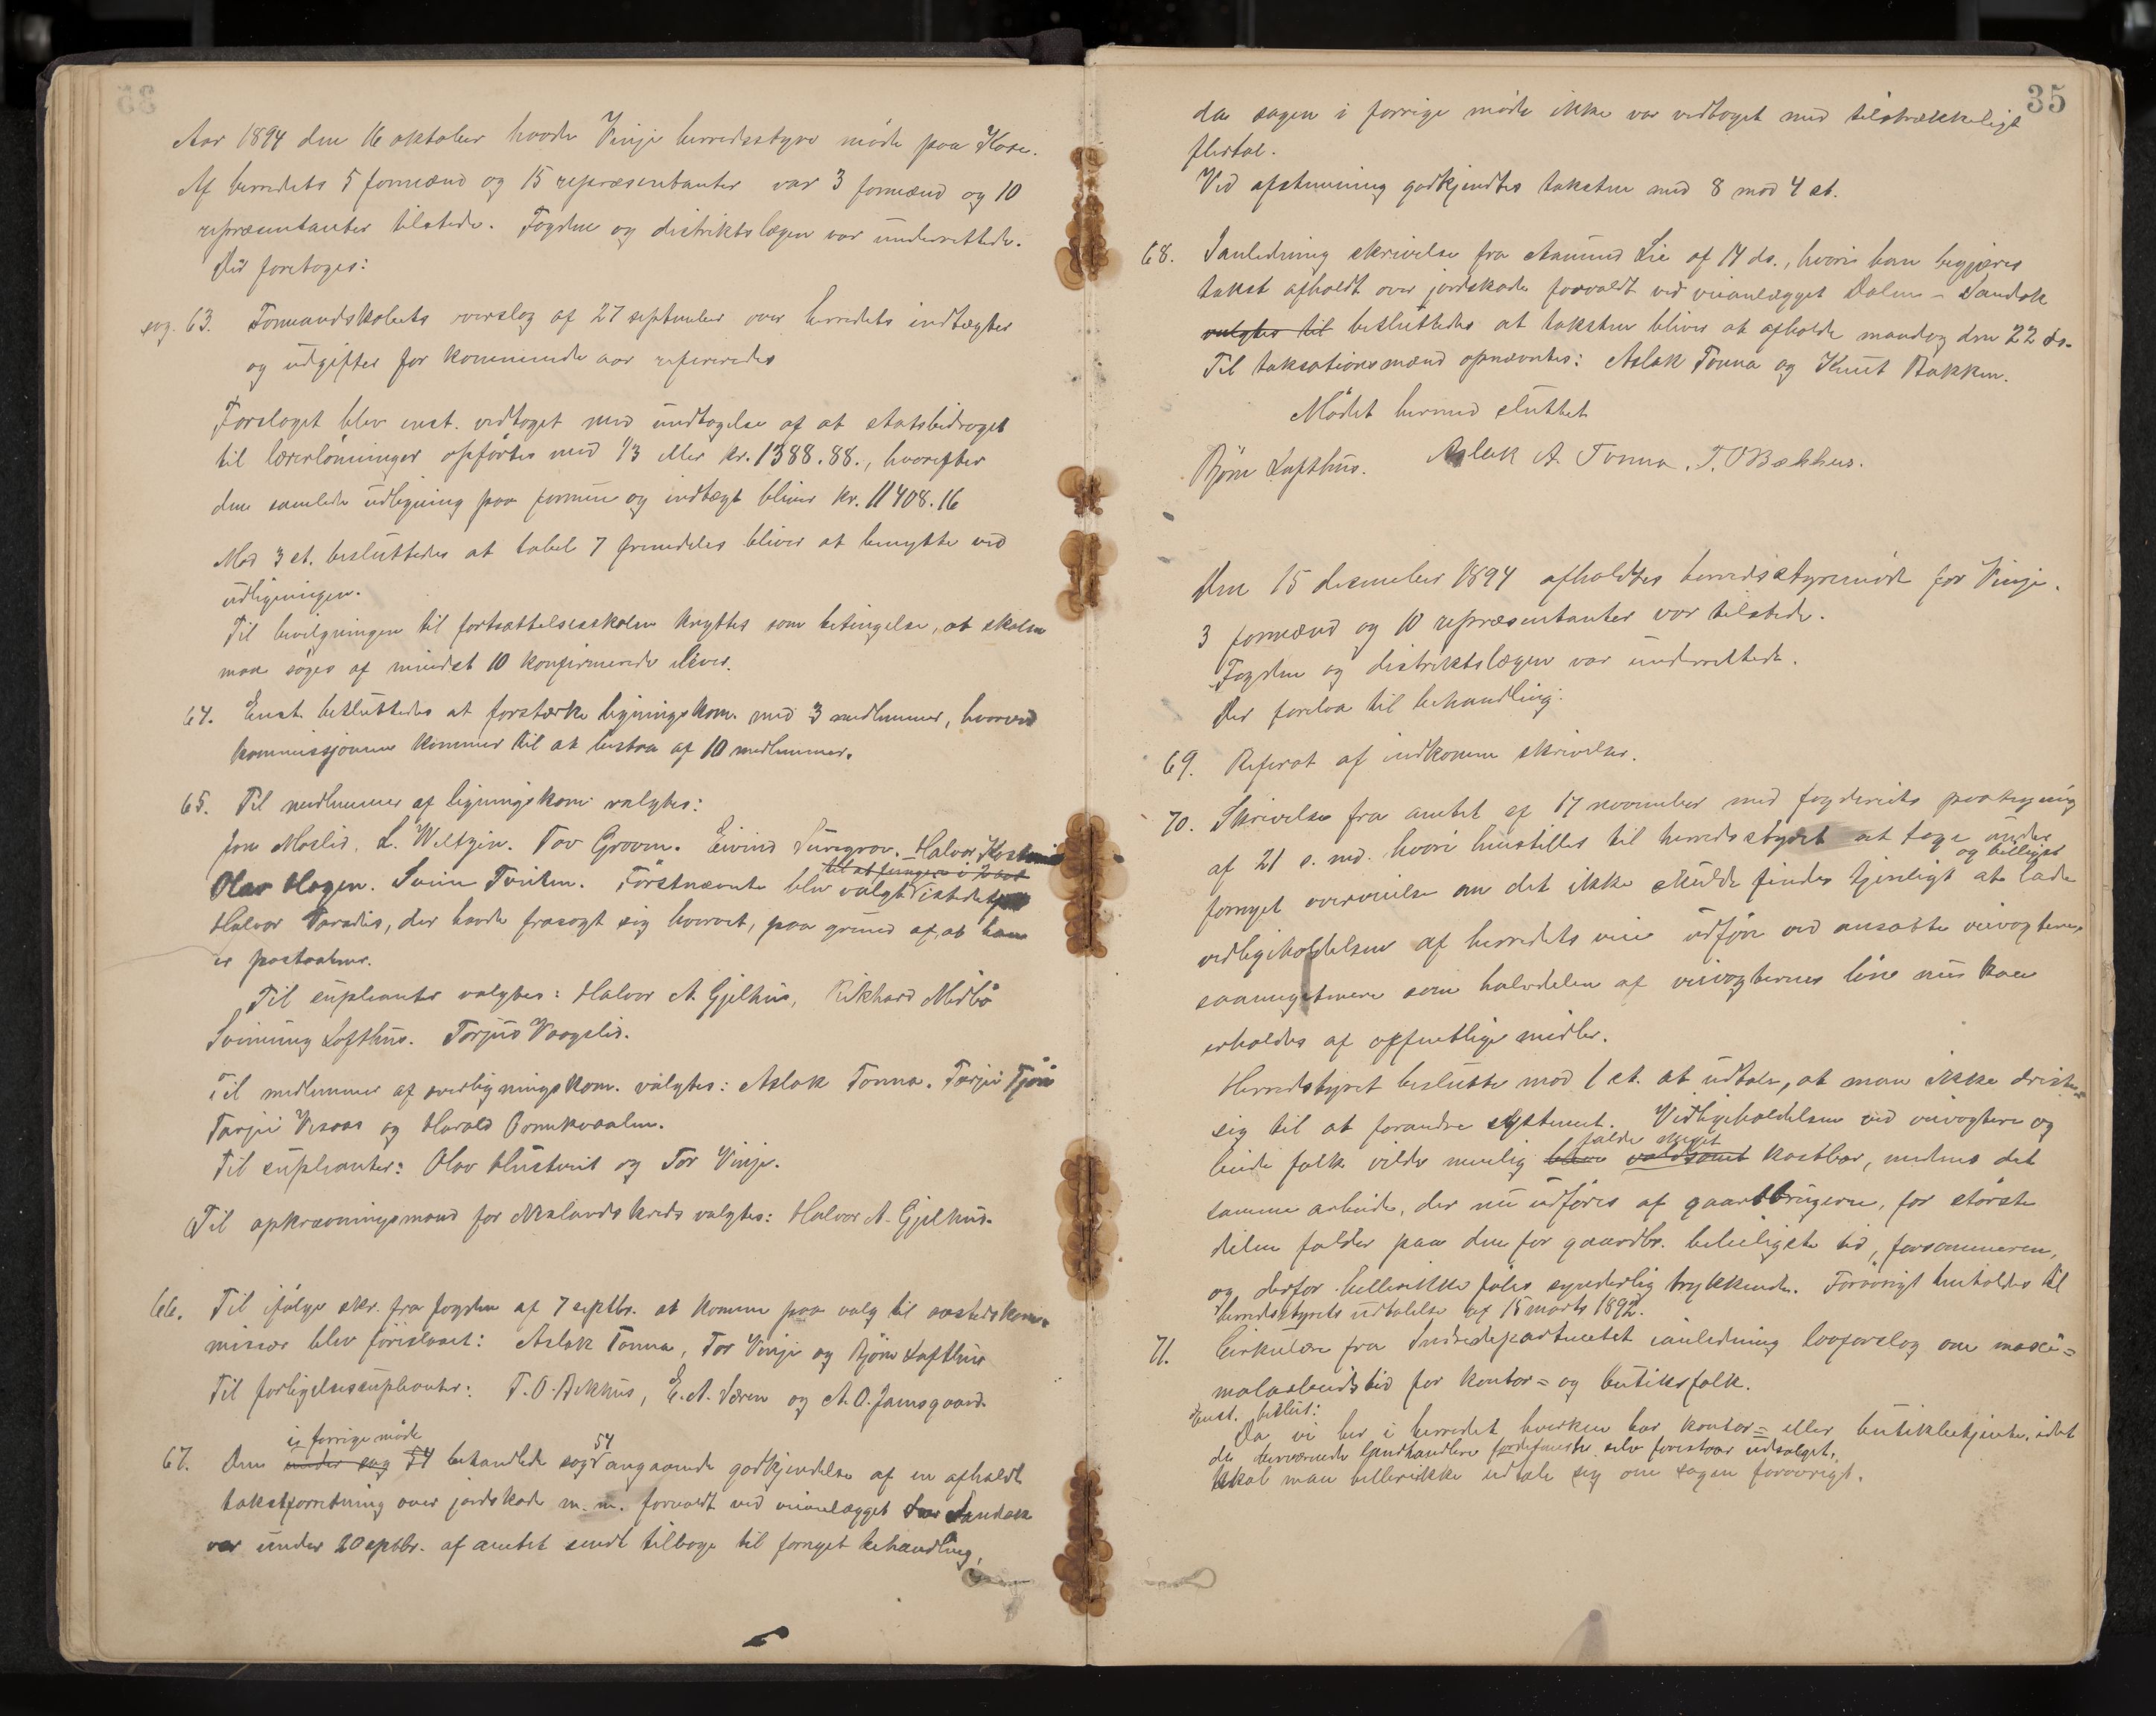 Aar 1894 den 16 oktober havde Vinje herredsstyre møde paa Kose.
Af herredets 5 formænd og 15 repræsentanter var 3 formænd og 10
repræsentanter tilstede. Fogden og distriktslægen var underrettede.
Der foretoges:
sag. 63. Formandskabets overslag af 27 september over herredets indtægter
og udgifter for kommende aar refereredes
Forslaget blev enst. vedtaget med undtagelse af at statsbidraget
til lærerlønninger opførtes med 1/3 eller kr. 1388.88., hvorefter
den samlede udligning paa formue og indtægt bliver kr. 11408.16
Mod 3 st. besluttedes at tabel 7 fremdeles bliver at benytte ved
udligningen.
Til bevilgningen til fortsættelsesskolen knyttes som betingelse, at skolen
maa søges af mindst 10 konfirmerede elever.
64. Enst. besluttedes at forstærke ligningskom. med 3 medlemmer, hvorved
kommissjonen kommer til at bestaa af 10 medlemmer.
65. Til medlemmer af ligningskom. valgtes:
Jon Moslid, L. Weltzin. Tov Groven. Eivind Suregrav. Halvor
Olav Hagen. Svein Tveiten. Førstnævnte blev valgt til at fungere i istedet
Halvor Paradis, der havde frasagt sig hvervet, paa grund af, at han
er postaabner.
Til suplianter valgtes: Halvor A. Gjelhus, Rikhard Midbø
Sveinung Lofthus. Torjus Vaagslid.
Til medlemmer af overligningskom. valgtes: Aslak Tonna. Tarjei Tjøn
Tarjei Vesaas og Harald Ormekvaalen.
Til suplianter: Olav Hustveit og Tor Vinje.
Til opkrævningsmand for Øislands kreds valgtes: Halvor A. Gjelhus.
66. Til ifølge skr. fra fogden af 7 septbr. at komme paa valg til aastedskom-
missær blev foreslaaet: Aslak Tonna, Tor Vinje og Bjørn Lofthus
Til forligelsessuplianter: T. O. Bækhus, E. A. Særen og A. O. Jamsgaard.
i forrige møde
67. Den under sag 54 behandlede sag 54 angaaende godkjendelse af en afholdt
takstforretning over jordskade m. m. forvoldt ved veianlægget Sandok
var under 20 septbr. af amtet sendt tilbage til fornyet behandling,
35
da sagen i forrige møde ikke var vedtaget med tilstrækkeligt
flertal.
Ved afstemning godkjendtes taksten med 8 mod 4 st.
68. I anledning skrivelse fra Aamund Lie af 14 ds., hvori han begjærer
takst afholdt over jordskade forvoldt ved veianlægget Dalen - Sandok
valgtes til besluttedes at taksten bliver at afholde mandag den 22 ds.
Til taksationsmænd opnævntes: Aslak Tonna og Knut Bakken.
Mødet hermed sluttet
Bjørn Lofthus. Aslak A. Tonna. T. O Bækhus.
Den 15 december 1894 afholdtes herredsstyremøde for Vinje.
3 formænd og 10 repræsentanter var tilstede.
Fogden og distriktslægen var underrettede.
Der forelaa til behandling:
69. Referat af indkomne skrivelser.
70. Skrivelse fra amtet af 17 november med fogderiets paategning
af 21 s. md. hvori henstilles til herredsstyret at tage under
fornyet overveielse om det ikke skulde findes tjenligt og billigst at lade
vedligeholdelsen af herredets veie udføre ved ansatte veivogtere,
saameget mere som halvdelen af veivogternes løn nu kan
erholdes af offentlige midler.
Herredsstyret beslutte mod 1 st. at udtale, at man ikke drister
sig til at forandre systemet. Vedligeholdelsen ved veivogtere og
leiede folk vilde nemlig blive voldsomt falde meget kostbar, medens det
samme arbeide, der nu udføres af gaardbrugerne, for største
delen falder paa den for gaardbr. beleiligste tid, forsommeren,
og derfor hellerikke føles synderlig trykkende. Forøvrigt henholdes til
herredsstyrets udtalelse af 15 marts 1892.
71. Cirkulære fra Indredepartementet i anledning lovforslag om maxi=
malarbeidstid for kontor= og butiksfolk.
Enst. beslut:
Da vi her i herredet hverken har kontor= eller butikbetjente, idet
de herværende landhandlere fordetmeste selv forestaar udsalget,
skal man hellerikke udtale sig om sagen forøvrigt.